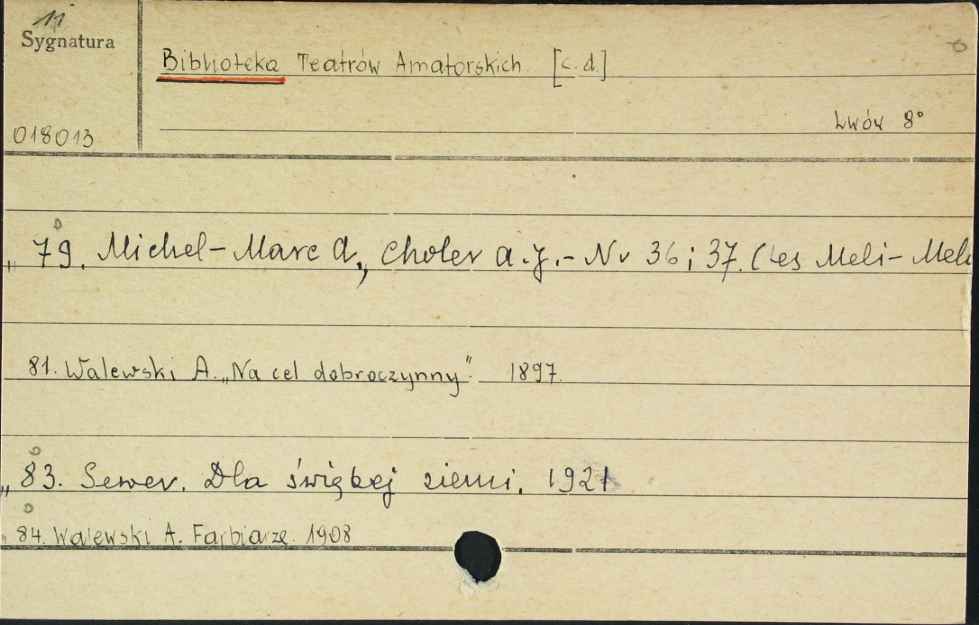 11
Sygnatura
Biblioteka Teatrów Amatorskich [c.d.]
Lwów 8°
018013
„ 79. Michel-Marc A., Choler A. J. - Nr 36 i 37. (Les Meli-Mel
81. Walewski A. „Na cel dobroczynny” 1897.
„ 83. Sewer. Dla świętej ziemi. 1921
84. Walewski A. Farbiarze. 1908